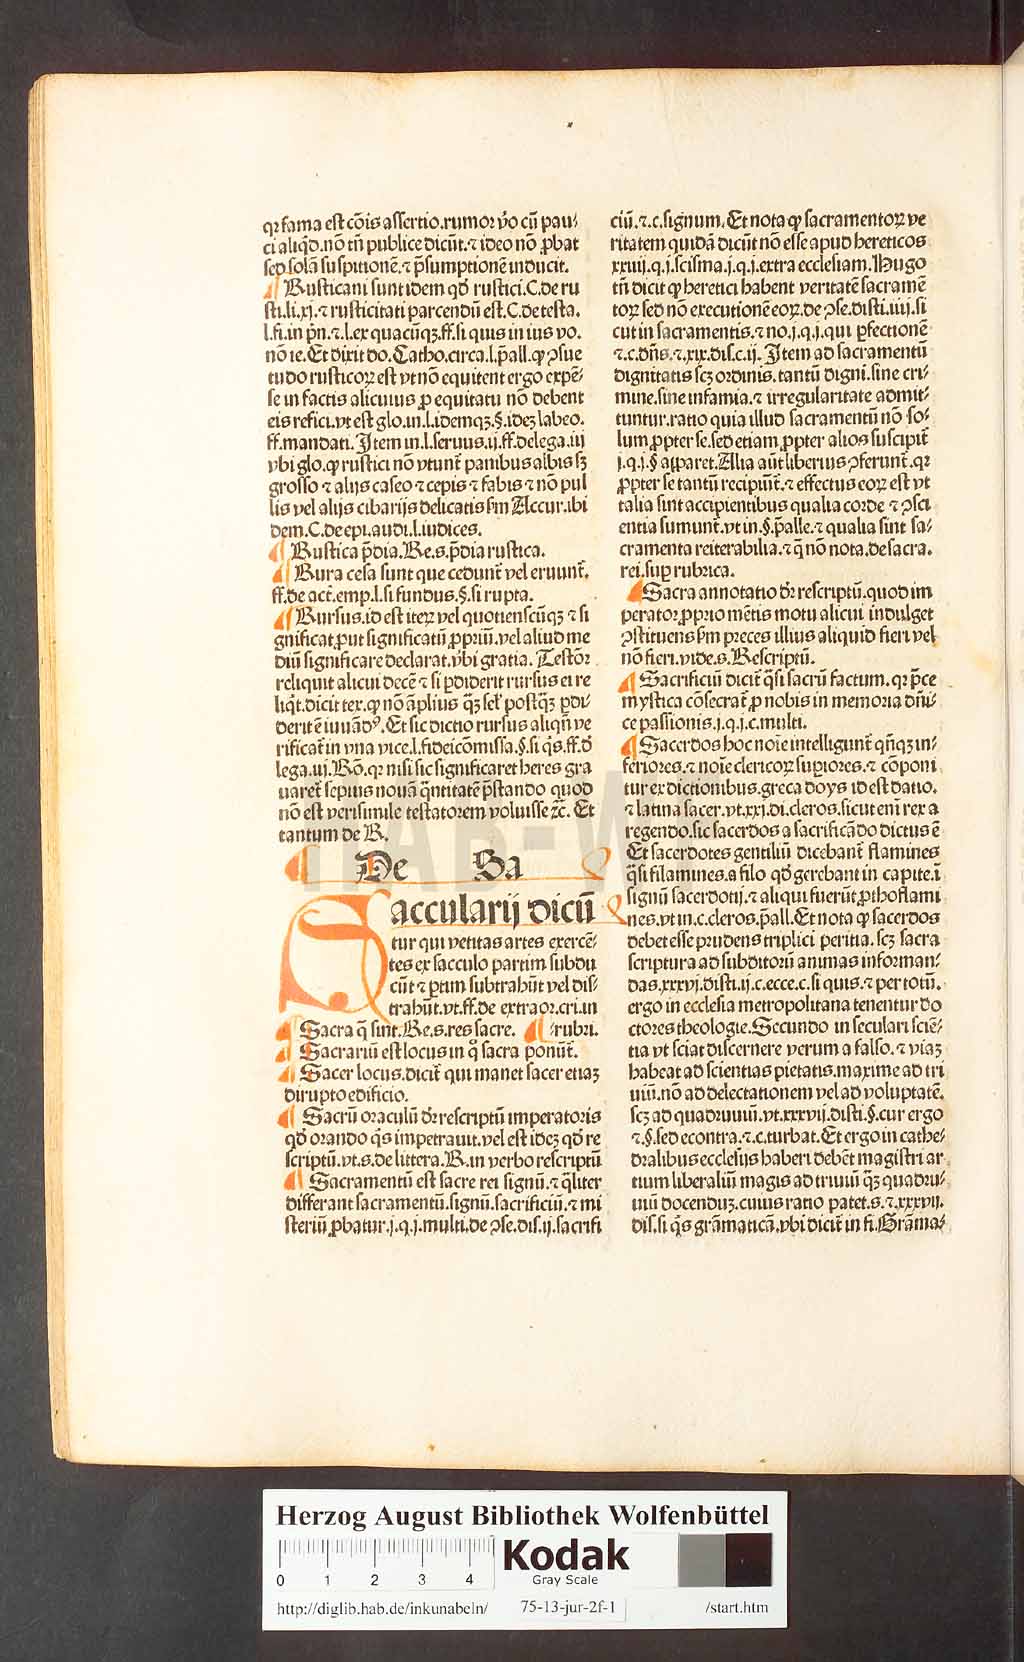 qꝛ fama est cōis assertio.rumoꝛ v̓o cū pau⸗
ci aliqd.nō tn̄ publice dicūt.⁊ ideo nō ꝓbat
sed solā suspitionē.⁊ p̄sumptionē inducit.
¶ Rusticani sunt idem qd̓ rustici.C.de ru
sti.li.xj.⁊ rusticitati parcendū est.C.de testa.
l.fi.in pn̄.⁊ l.lex quacūqꝫ.ff.si quis in ius vo.
nō ie.Et dixit do.Catho.circa.l.p̄all.ꝙ ꝯsue
tudo rusticoꝝ est vt nō equitent ergo expē⸗
se in factis alicuius ꝓ equitatu nō debent
eis refici.vt est glo.in.l.idemqꝫ.§.ideꝫ labeo.
ff.mandati.Item in.l.seruus.ij.ff.delega.iij
vbi glo.ꝙ rustici nō vtunt᷑ panibus albis sꝫ
grosso ⁊ alijs caseo ⁊ cepis ⁊ fabis ⁊ nō pul
lis vel alijs cibarijs delicatis s̄m Accur.ibi
dem.C.de epi.audi.l.iudices.
¶ Rustica p̄dia.Re.s.p̄dia rustica.
¶ Rura cesa sunt que cedunt᷑ vel eruunt᷑.
ff.de act᷑.emp.l.si fundus.§.si rupta.
¶ Rursus.id est iteꝝ vel quotienscūqꝫ ⁊ si
gnificat ꝓut significatū ꝓpriū.vel aliud me
diū significare declarat.vbi gratia. Testōꝛ
reliquit alicui decē ⁊ si ꝑdiderit rursus ei re
liq̄t.dicit tex.ꝙ nō āplius q̄ꝫ sel̓ postq̄ꝫ ꝑdi⸗
derit ē iuuādꝰ.Et sic dictio rursus aliqn̄ ve
rificat᷑ in vna vice.l.fideicōmissa.§.si q̄s.ff.d̓
lega.iij.Rō.qꝛ nisi sic significaret heres gra
uaret᷑ sepius nouā q̄ntitatē p̄stando quod
nō est verisimile testatorem voluisse ⁊c̄. Et
tantum de R.
¶ De Sa
Saccularij dicū
tur qui vetitas artes exercē⸗
tes ex sacculo partim subdu
cūt ⁊ ꝑtim subtrahūt vel dis⸗
trahūt.vt.ff.de extraoꝛ.cri.in
¶ Sacra q̄ sint.Re.s.res sacre. ¶ rubri.
¶ Sacrariū est locus in qͦ sacra ponūt᷑.
¶ Sacer locus.dicit᷑ qui manet sacer etiaꝫ
dirupto edificio.
¶ Sacrū oraculū dr̄ rescriptū imperatoris
qd̓ orando q̄s impetrauit.vel est ideꝫ qd̓ re
scriptū.vt.s.de littera.R.in verbo rescriptū
¶ Sacramentū est sacre rei signū.⁊ q̄liter
differant sacramentū.signū.sacrificiū.⁊ mi
steriū ꝓbatur.j.q.j.multi.de ꝯse.dis.ij.sacrifi
ciū.⁊.c.signum.Et nota ꝙ sacramentoꝝ ve
ritatem quidā dicūt nō esse apud hereticos
xxiiij.q.j.scisma.j.q.j.extra ecclesiam.Hugo
tn̄ dicit ꝙ heretici habent veritatē sacramē
toꝝ sed nō executionē eoꝝ.de ꝯse.disti.iiij.si
cut in sacramentis.⁊ no.j.q.j.qui ꝑfectionē
⁊.c.dn̄s.⁊.xix.dis.c.ij. Item ad sacramentū
dignitatis scꝫ ordinis.tantū digni.sine cri⸗
mine.sine infamia.⁊ irregularitate admit⸗
tuntur.ratio quia illud sacramentū nō so⸗
lum ꝓpter se.sed etiam ꝓpter alios suscipit᷑
j.q.j.§ apparet.Alia aūt liberius ꝯferunt᷑.qꝛ
ꝓpter se tantū recipiūt᷑.⁊ effectus eoꝝ est vt
talia sint accipientibus qualia corde ⁊ ꝯsci
entia sumunt᷑.vt in.§.p̄alle.⁊ qualia sint sa⸗
cramenta reiterabilia.⁊ q̄ nō nota.de sacra.
rei.suꝑ rubrica.
¶ Sacra annotatio dr̄ rescriptū.quod im
peratoꝛ ꝓprio mētis motu alicui indulget
ꝯstituens s̄m preces illius aliquid fieri vel
nō fieri.vide.s.Rescriptū.
¶ Sacrificiū dicit᷑ q̄si sacrū factum.qꝛ p̄ce
mystica cōsecrat᷑ ꝓ nobis in memoria dn̄i⸗
ce passionis.j.q.j.c.multi.
¶ Sacerdos hoc noīe intelligunt᷑ qn̄qꝫ in⸗
feriores.⁊ noīe clericoꝝ suꝑiores.⁊ cōponi
tur ex dictionibus.greca doys id est datio.
⁊ latina sacer.vt.xxj.di.cleros.sicut eni᷑ rex a
regendo.sic sacerdos a sacrificādo dictus ē
Et sacerdotes gentiliū dicebant᷑ flamines
q̄si filamines.a filo qd̓ gerebant in capite.ī
signū sacerdotij.⁊ aliqui fuerūt ꝓthoflami
nes.vt in.c.cleros.p̄all.Et nota ꝙ sacerdos
debet esse prudens triplici peritia.scꝫ sacra
scriptura ad subditoꝝ animas informan⸗
das.xxxvj.disti.ij.c.ecce.c.si quis.⁊ per totū.
ergo in ecclesia metropolitana tenentur do
ctores theologie.Secundo in seculari sciē⸗
tia vt sciat discernere verum a falso.⁊ viaꝫ
habeat ad scientias pietatis.maxime ad tri
uiū.nō ad delectationem vel ad voluptatē.
scꝫ ad quadruuiū.vt.xxxvij.disti.§.cur ergo
⁊.§.sed econtra.⁊.c.turbat.Et ergo in cathe⸗
dralibus ecclesijs haberi debēt magistri ar
tium liberaliū magis ad triuiū q̄ꝫ quadru⸗
uiū docenduꝫ.cuius ratio patet.s.⁊.xxxvij.
dis.si q̄s grāmaticā.vbi dicit᷑ in fi.Grāma⸗
HAB-WF
Herzog August Bibliothek Wolfenbüttel
0 1 2 3 4
Kodak
Gray Scale
http://diglib.hab.de/inkunabeln/ 75-13-jur-2f-1 /start.htm